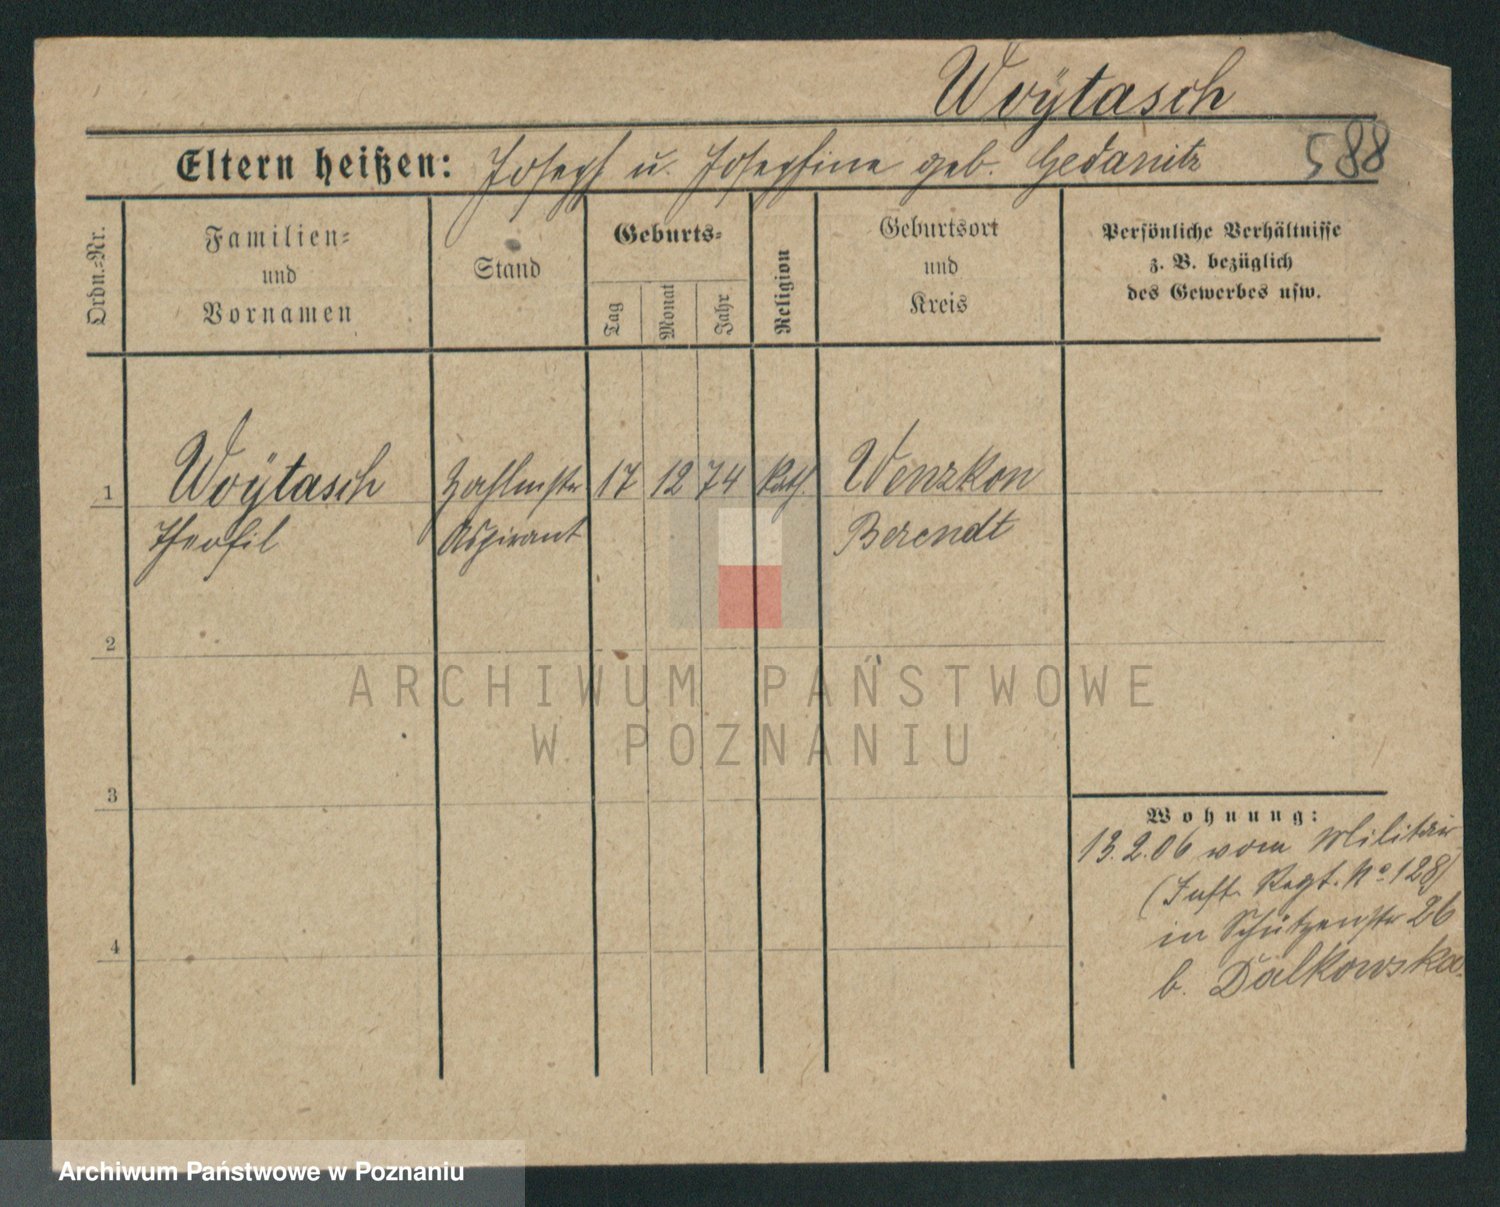 Woÿtasch
Eltern heißen: Joseph u. Josephine geb. Gedanitz
588
Ordn.-Nr.
Familien-
und
Vornamen
Stand
Geburts-
Tag
Monat
Jahr
Religion
Geburtsort
und
Kreis
Persönliche Verhältnisse
z. B. bezüglich
des Gewerbes usw.
1 Woÿtasch Zahlmstr 17 12 74 kath. Wenzkon
Theofil Aspirant Berendt
2
ARCHIWUM PAŃSTWOWE
W POZNANIU
3
Wohnung:
13.2.06 vom Militär
(Inft. Regt. No 128)
in Schützenstr 26
b. Dalkowska
4
Archiwum Państwowe w Poznaniu